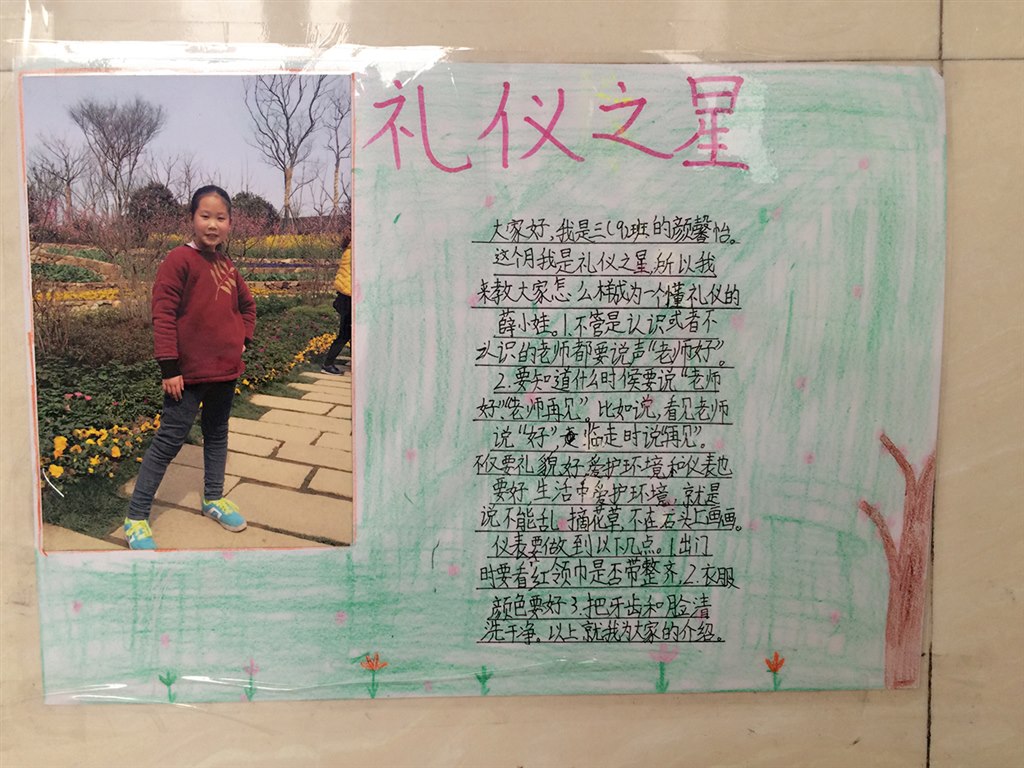 礼仪之星
大家好,我是三(9)班的颜馨怡。
这个月我是礼仪之星,所以我
来教大家怎么样成为一个懂礼仪的
薛小娃。1.不管是认识或者不
认识的老师都要说声“老师好”。
2.要知道什么时候要说“老师
好”“老师再见”。比如说,看见老师
说“好”,临走时说“再见”。
不仅要礼貌好,爱护环境和仪表也
要好,生活中爱护环境,就是
说不能乱摘花草,不在石头上画画。
仪表要做到以下几点。1.出门
时要看红领巾是否带整齐,2.衣服
颜色要好3.把牙齿和脸清
洗干净。以上就我为大家的介绍。